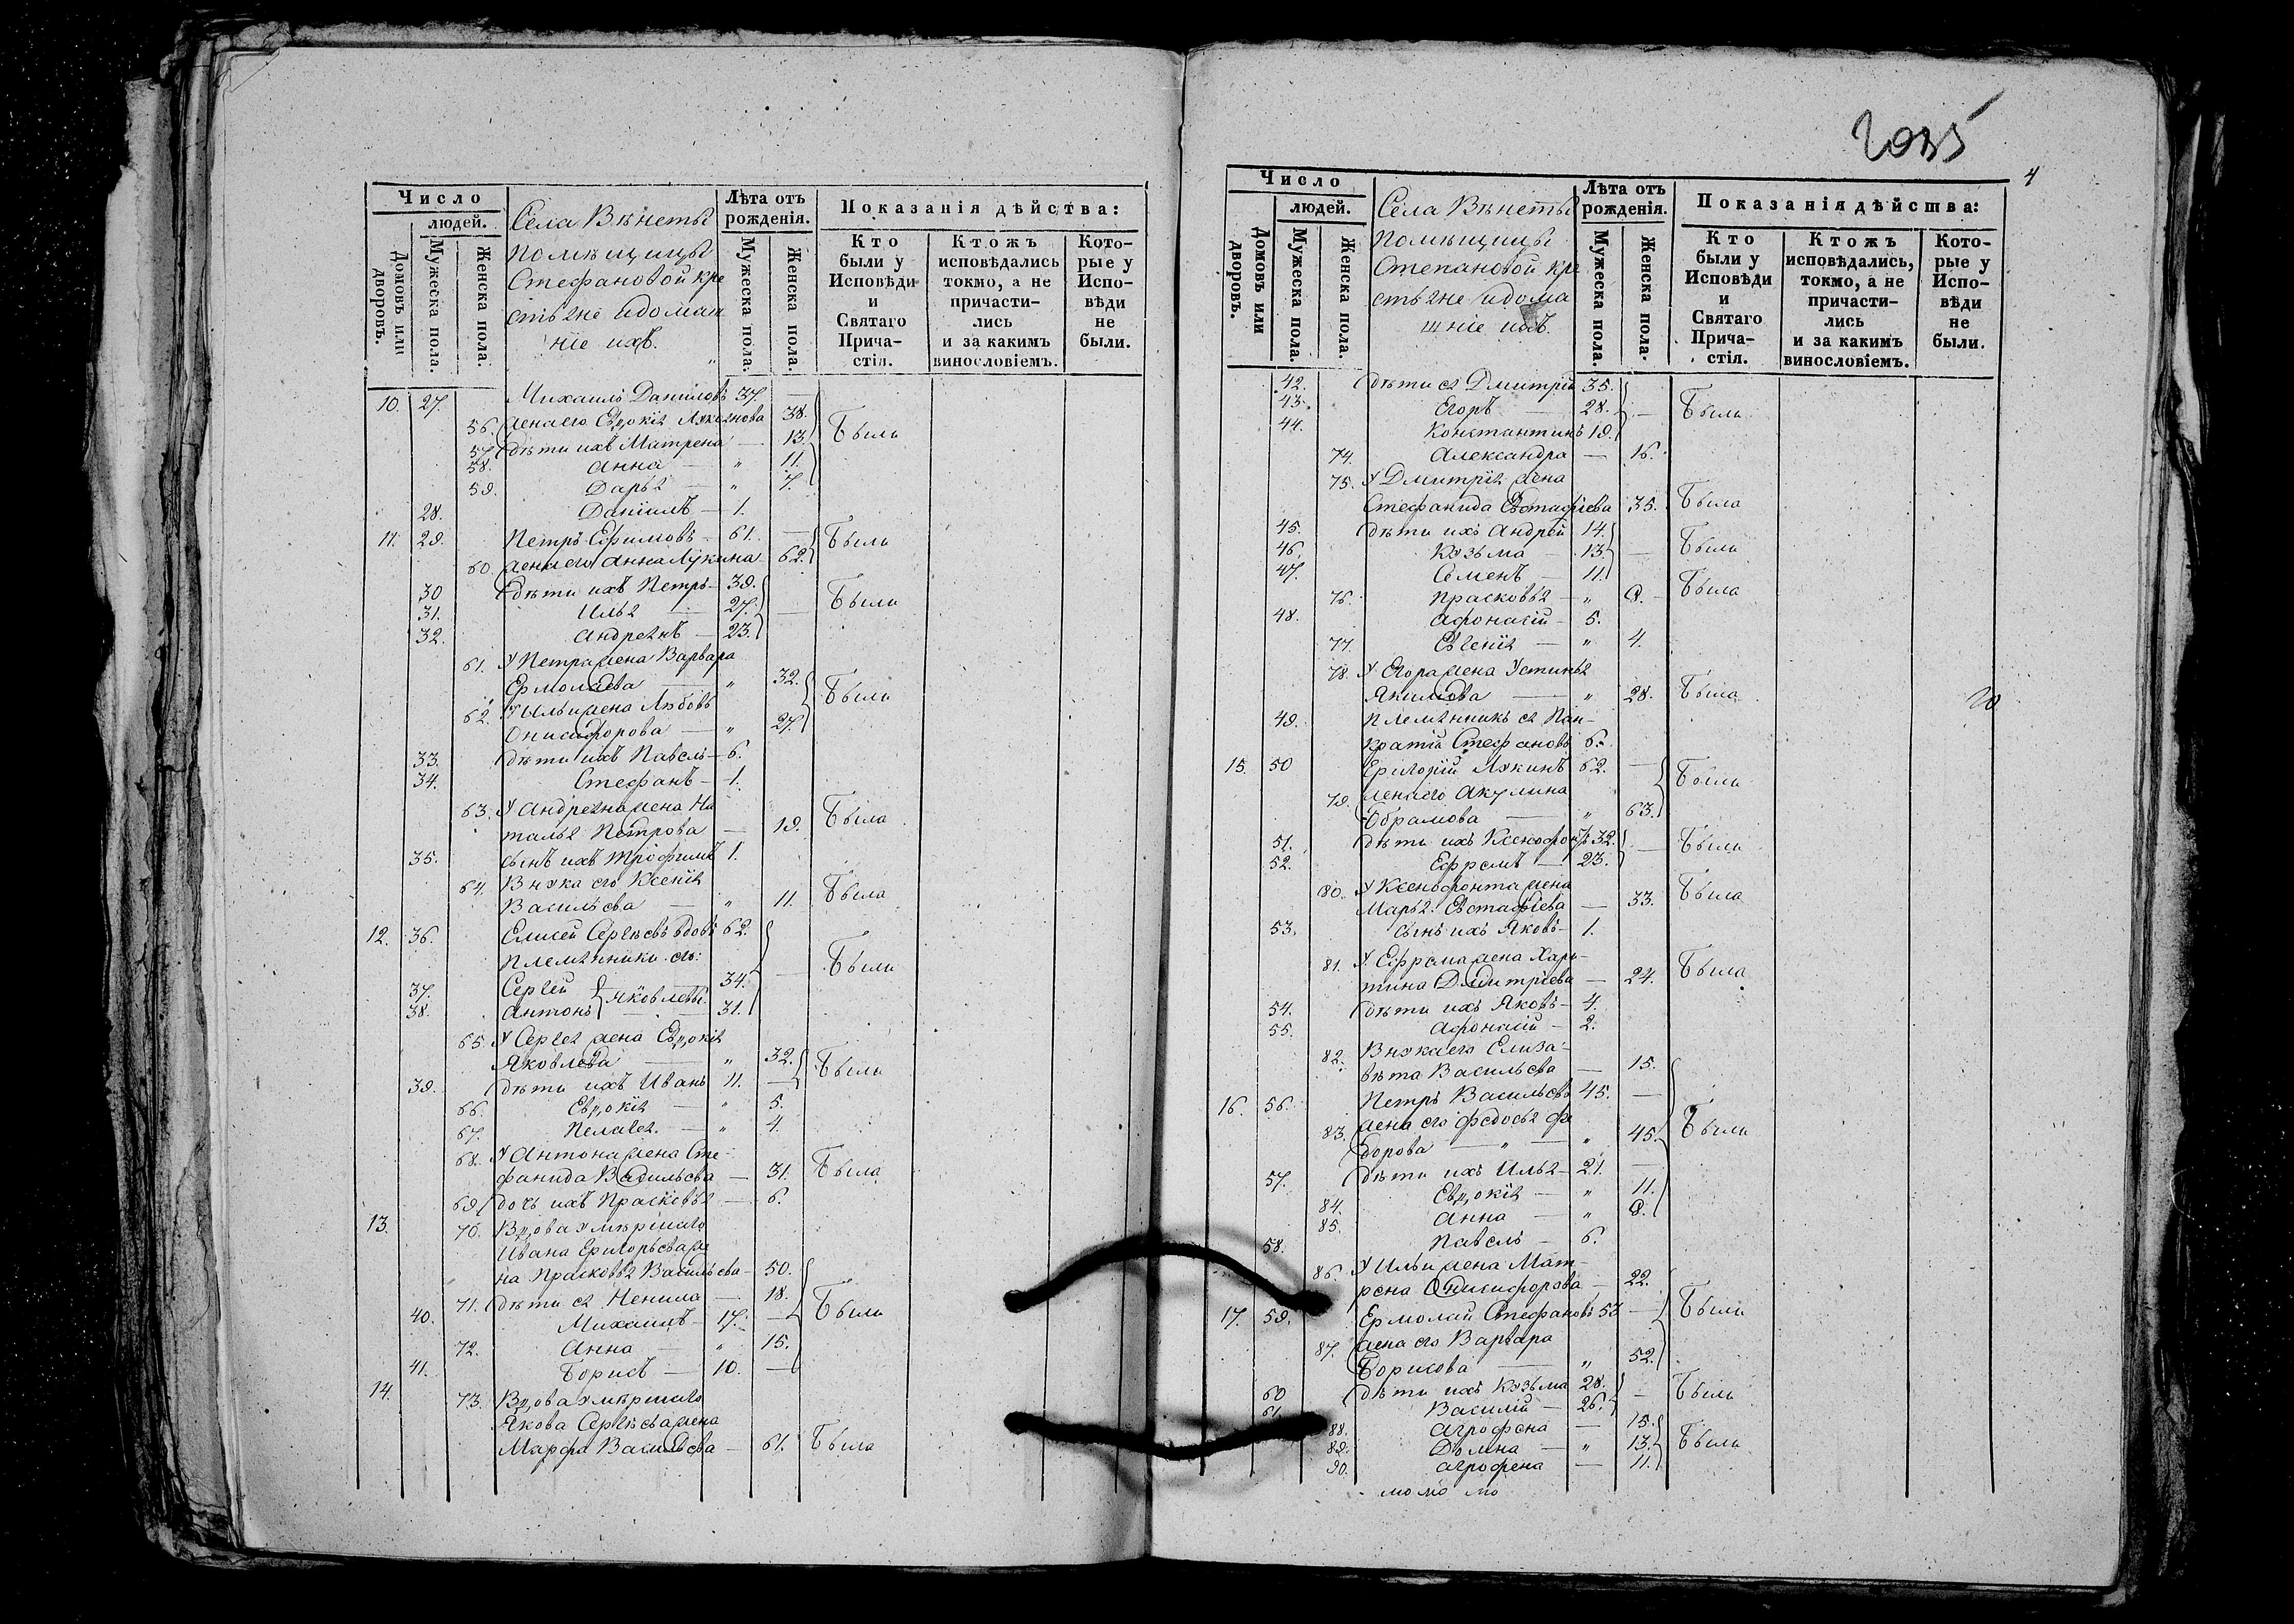 Число
людей.
Домовъ или дворовъ.
Мужеска пола.
Женска пола.
Села Вѣнеты
помѣщицы
Стефановой кре
стьяне и домаш
ніе ихъ.
Лѣта отъ рожденія.
Мужеска пола.
Женска пола.
Показанія дѣйства:
Кто были у Исповѣди и Святаго Прича- стія.
Ктожъ исповѣдались токмо, а не причасти- лись и за какимъ винословіемъ.
Кото- рые у Испо- вѣди не были.
10. 27. Михаилъ Даниловъ 37. —
56. жена его Евдокія 38. Были
57. дѣти ихъ Матрена — 13.
58. Анна — " 11.
59. Дарья — " 7.
28. Даніилъ — 1.
11. 29. Петръ Ефимовъ — 61. — Были
60. жена его Анна Лукина 62.
30 дѣти ихъ Петръ — 39.
31. Илья 27. — Были
32. Андреянъ — 23.
61. У Петра жена Варвара
Ермолаева — " 32. Были
62. У Ильи жена Любовь
Онисифорова — " 27.
33. дѣти ихъ Павелъ — 6.
34. Стефанъ — 1.
63. У Андреяна жена На
талья Петрова — 19. Была
35. сынъ ихъ Трофимъ 1.
64. Внука его Ксенія
Васильева — " 11. Была
12. 36. Елисей Сергѣевъ вдовъ 62.
племянники его:
37. Сергей 34. — Были
38. Антонъ } Яковлевы. 31.
65. У Сергея жена Евдокія
Яковлева — " 32. Были
39. дѣти ихъ Иванъ 11. —
66. Евдокія — " 5.
67. Пелагея — " 4.
68. У Антона жена Сте-
фанида Васильева — 31. Была
69. дочь ихъ Прасковья — 6.
13. 70. Вдова умѣршаго
Ивана Григорьева же
на Прасковья Васильева — 50.
71. дѣти ея Ненила — 18. Были
40. Михаилъ — 17. —
72. Анна " 15.
41. Борисъ — 10. —
14. 73. Вдова умѣршаго
Якова Сергѣева жена
Марфа Васильева — 61. Была
2035
4
Число
людей.
Домовъ или дворовъ.
Мужеска пола.
Женска пола.
Села Вѣнеты
помѣщицы
Степановой кре
стьяне и дома
шніе ихъ.
Лѣта отъ рожденія.
Мужеска пола.
Женска пола.
Показанія дѣйства:
Кто были у Исповѣди и Святаго Прича- стія.
Ктожъ исповѣдались, токмо, а не причасти- лись и за какимъ винословіемъ.
Кото- рые у Испо- вѣди не были.
42. дѣти ея Дмитрій 35.
43. Егоръ — 28. — Были
44. Константинъ 19.
74. Александра — 16.
75. У Дмитрія жена
Стефанида Евстафіева 35. Была
45. дѣти ихъ Андрей 14.
46. Кузьма — 13. — Были
47. Семенъ — 11.
76. Прасковья — " 9. Была
48. Афонасій — 5.
77. Евгенія — " 4.
78. У Егора жена Устинья
Якимова — " 28. Была
49. племянникъ ея Пан-
кратій Стефановъ 6.
15. 50 Григорій Лукинъ 62. — Были
79. жена его Акулина
Абрамова — " 63.
51. дѣти ихъ Ксенофонтъ 32. — Были
52. Ефремъ — 23.
80. У Ксенофонта жена
Марья Евстафіева — 33. Была
53. сынъ ихъ Яковъ — 1.
81. У Ефрема жена Хари-
тина Дмитріева — 24. Была
54. дѣти ихъ Яковъ — 4.
55. Афонасій — 2.
82. Внука его Елиза-
вѣта Васильева — 15.
16. 56. Петръ Васильевъ 45. —
83. жена его Федосья Фе
дорова — " 45. Были
57. дѣти ихъ Илья — 21. —
84. Евдокія — " 11.
85. Анна — " 9.
58. Павелъ — 6.
86. У Ильи жена Мат-
рена Онисифорова — 22.
17. 59. Ермолай Стефановъ 53 — Были
87. жена его Варвара
Борисова — " 52.
60 дѣти ихъ Кузьма 28. — Были
61. Василій — 26.
88. Агрофена — 15.
89. Домна — " 13. Были
90. Агрофена — 11.
20